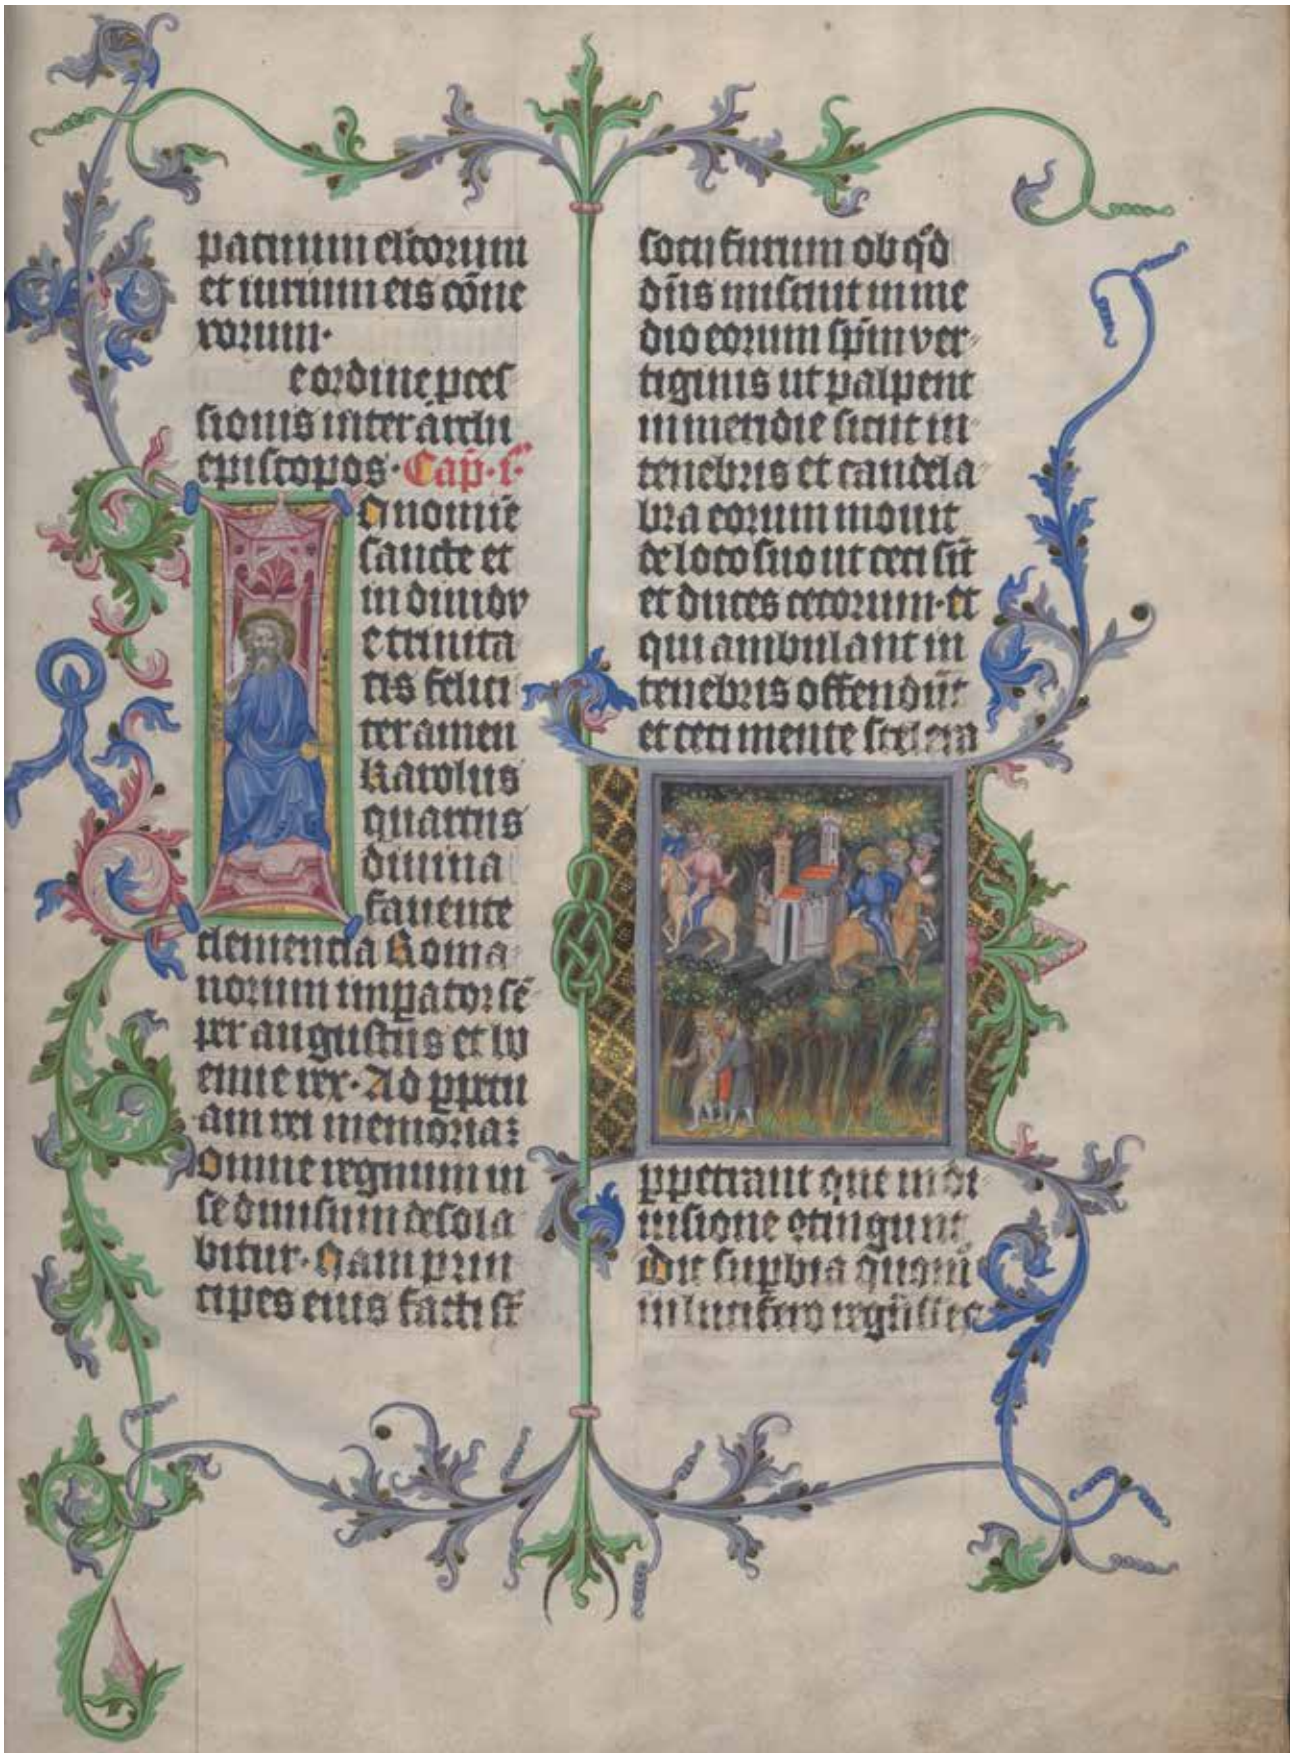 patuum elcorum
et iurium eis cōue
torum·
e ordine pces
sionis inter archi
episcopos· Cap· i·
In nomie
sancte et
indiuidu
e trinita
tis felici
ter amen
Karolus
quartus
diuina
fauente
clemencia Roma
norum impator sē
per augustus et bo
emie rex· Ad ppetu
am rei memoriaz
Omne regnum in
se diuisum desola
bitur· Nam prin
cipes eius facti st̄
socii furum ob qd̄
dn̄s miscuit in me
dio eorum spm̄ ver
tiginis ut palpent
in meridie sicut in
tenebris et candela
bra eorum mouit
de loco suo ut ceci sīt
et duces cecorum· et
qui ambulant in
tenebris offendūt
et ceci mente scelera
ppetrant que in di
uisione ɔtingunt
Dic supbia
in lucifero